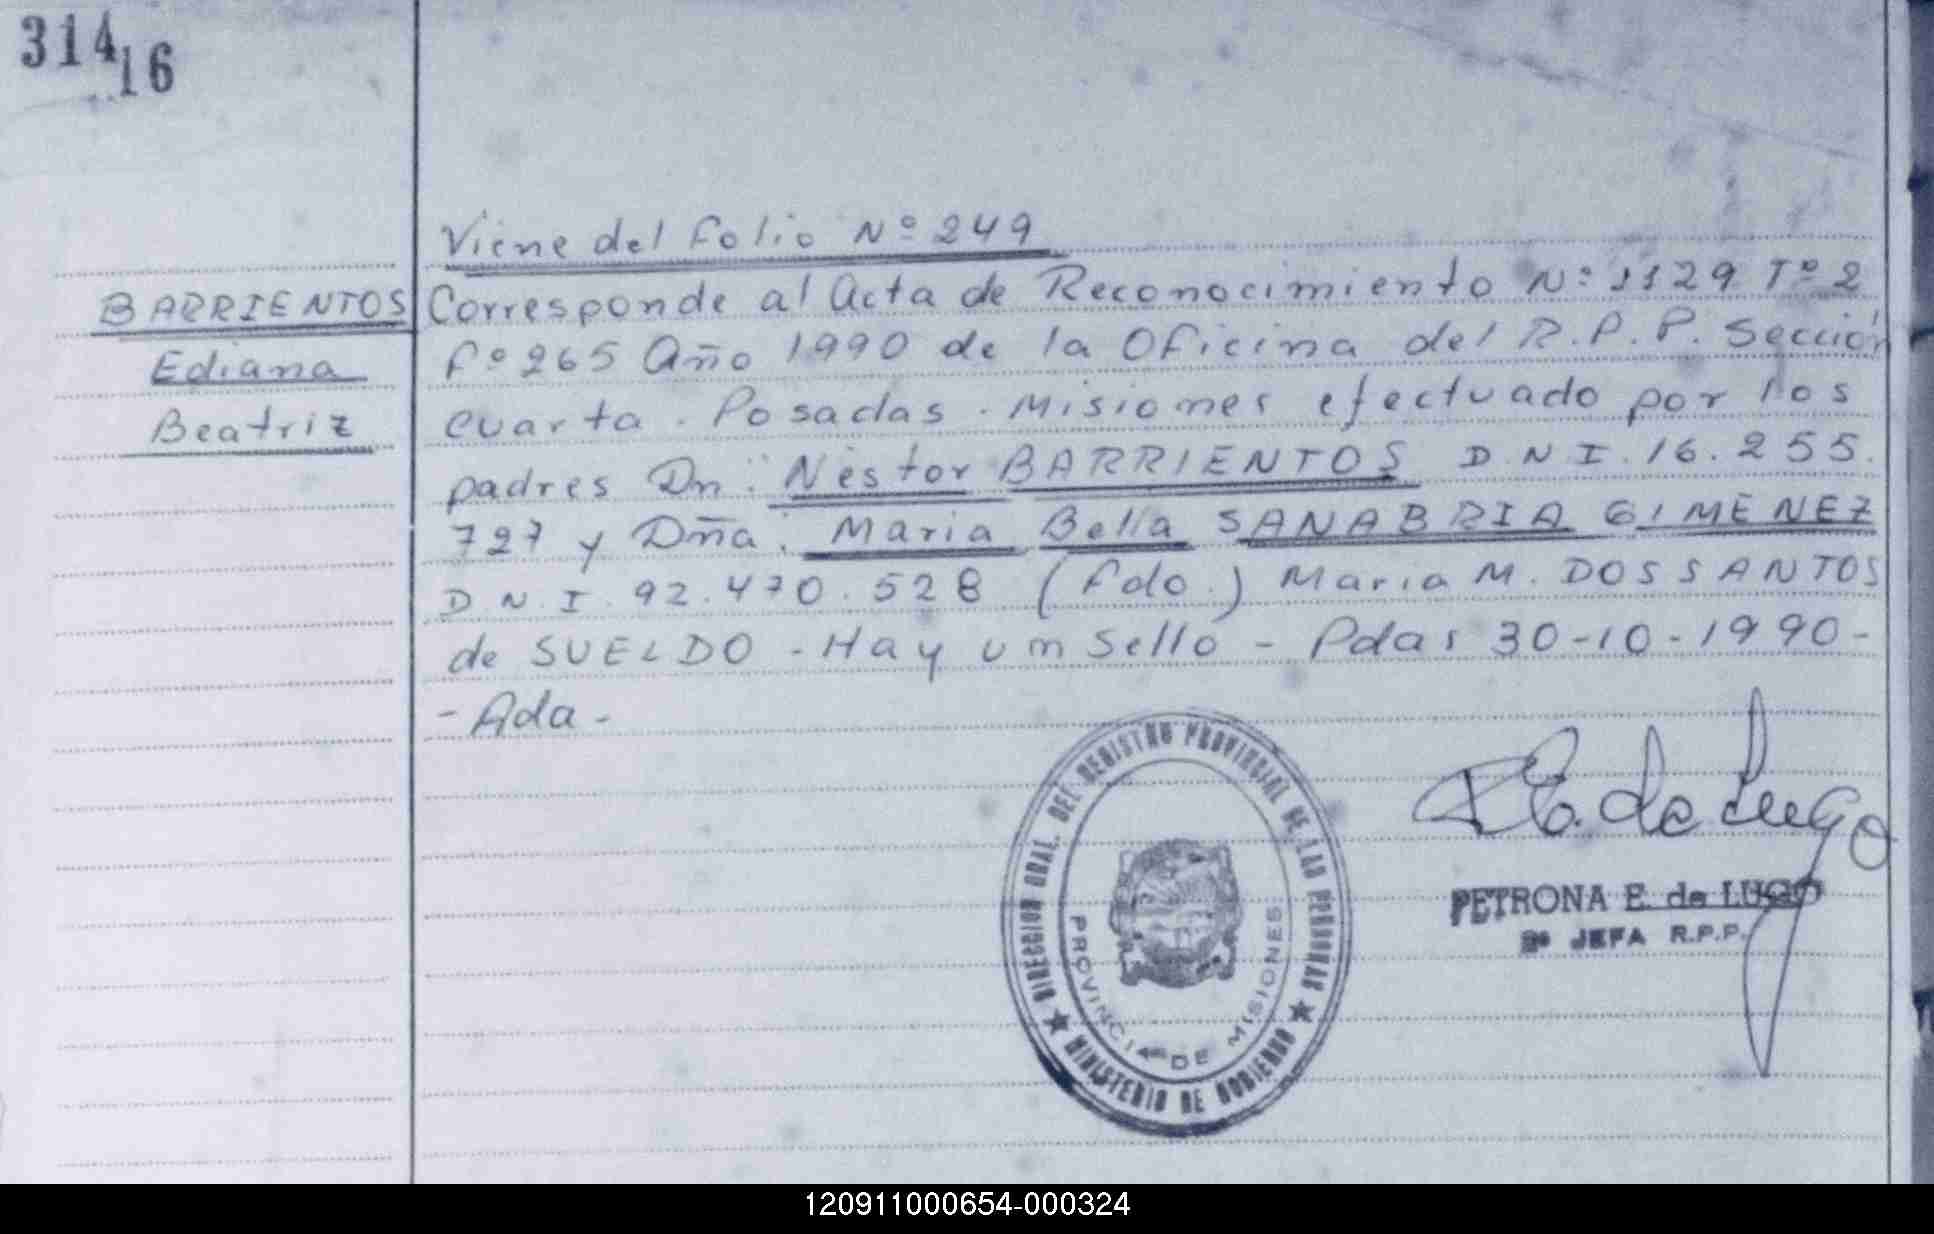 314
16
Viene del Folio Nº 249
BARRIENTOS
Ediana
Beatriz
Corresponde al Acta de Reconocimiento Nº: 1129 Tº 2
Fº 265 Año 1990 de la Oficina del R.P.P. Sección
cuarta. Posadas. Misiones efectuado por los
padres Dn: Nestor BARRIENTOS D.N.I. 16.255.
727 y Dña: Maria Bella SANABRIA GIMENEZ
D.N.I. 92.470.528 (Fdo.) Maria M. DOS SANTOS
de SUELDO - Hay un sello - Pdas 30-10-1990-
- Ada -
DIRECCION GRAL. DEL REGISTRO PROVINCIAL DE LAS PERSONAS
PROVINCIA DE MISIONES
MINISTERIO DE GOBIERNO
P E. de Lugo
PETRONA E. de LUGO
2º JEFA R.P.P.
120911000654-000324